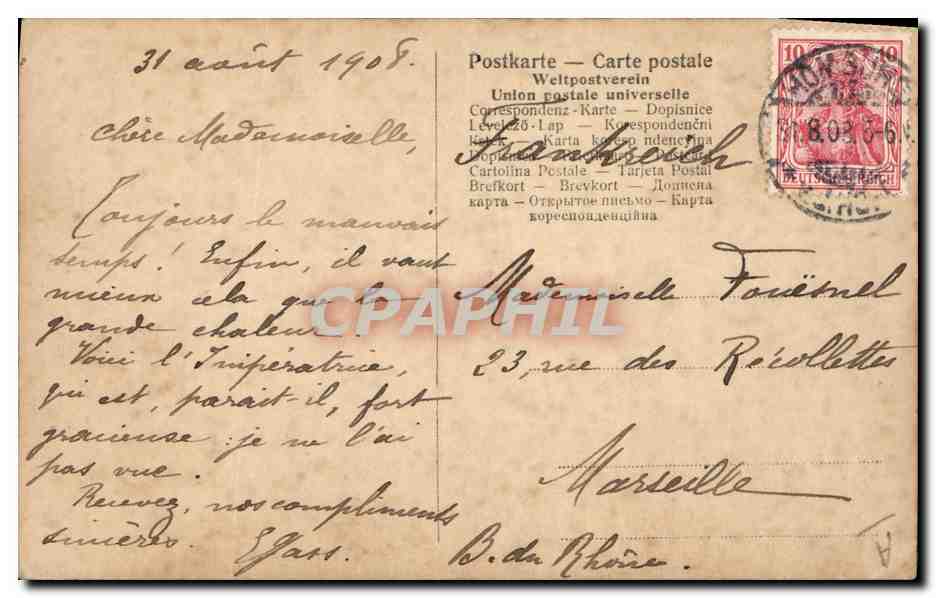 31 août 1908.
Chère Mademoiselle,
Toujours le mauvais
temps! Enfin, il vaut
mieux cela que la
grande chaleur.
Voici l'Impératrice,
qui est, paraît-il, fort
gracieuse: je ne l'ai
pas vue.
Recevez, nos compliments
sincères.
Postkarte — Carte postale
Weltpostverein
Union postale universelle
Correspondenz-Karte — Dopisnice
Levelező-Lap — Korespondenční
Karta
Cartolina Postale — Tarjeta Postal
Brefkort — Brevkort — Дописна
карта — Открытое письмо — Карта
кореспонденційна
Frankreich
Mademoiselle Fouësnel
23, rue des Récollettes
Marseille
B. du Rhône.
10 10
DEUTSCHES REICH
31.8.08.5-6
CPAPHIL
A